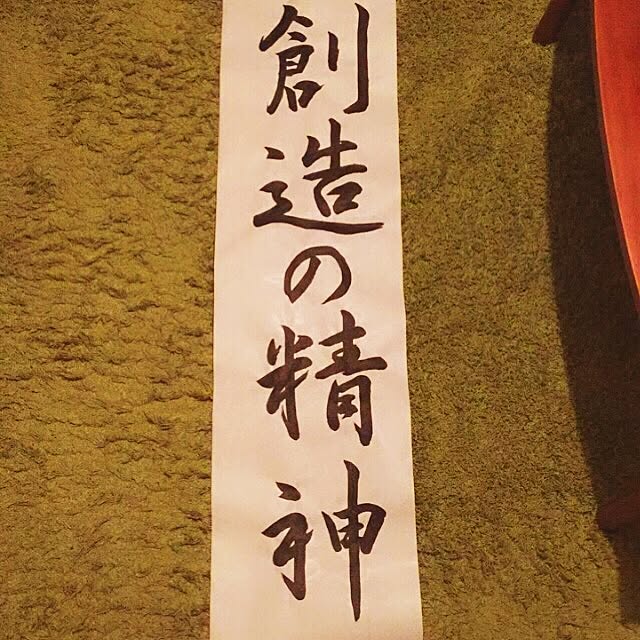 創造の精神